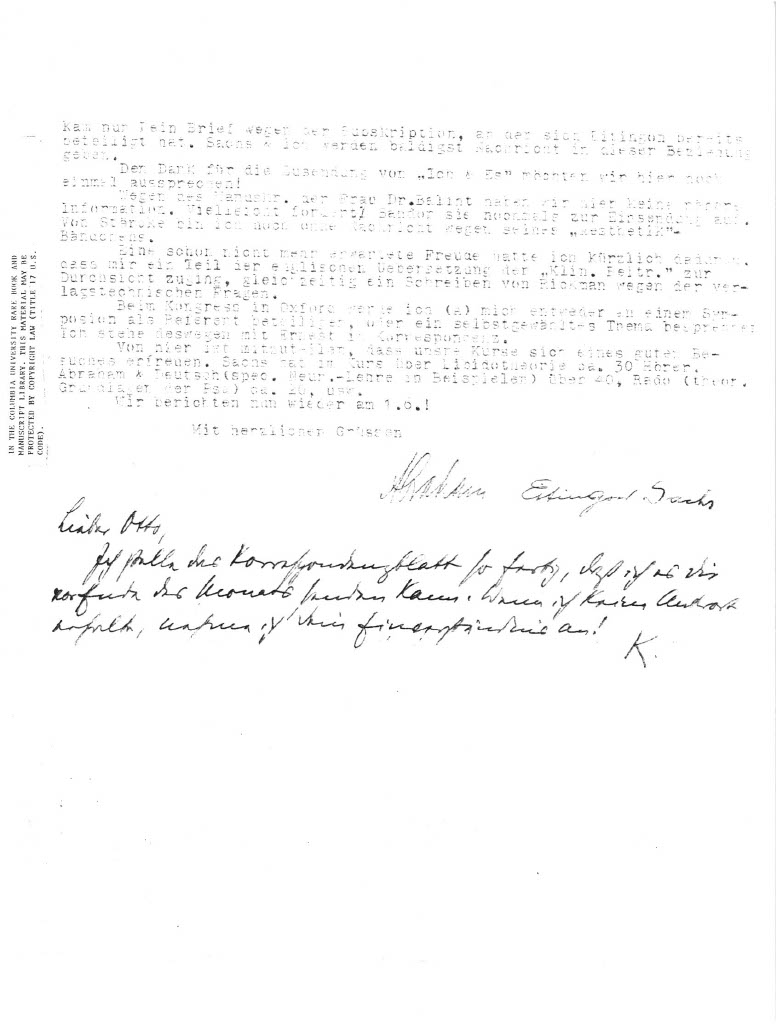 Kam nur Dein Brief wegen der Subskription, an der sich Eitingon bereits
beteiligt hat. Sachs & ich werden baldigst Nachricht in dieser Beziehung
geben.
Den Dank für die Zusendung von „Ich & Es” möchten wir hier noch
einmal aussprechen!
Wegen des Manuskr. der Frau Dr.Balint haben wir hier keine nähere
Information. Vielleicht fordert Sandor sie nochmals zur Einsendung auf.
Von Stärcke bin ich noch ohne Nachricht wegen seines „Aesthetik”-
Bändchens.
Eine schon nicht mehr erwartete Freude hatte ich kürzlich dadurch,
dass mir ein Teil der englischen Uebersetzung der „Klin. Beitr.” zur
Durchsicht zuging, gleichzeitig ein Schreiben von Rickman wegen der ver-
lagstechnischen Fragen.
Beim Kongress in Oxford werde ich (a) mich entweder an einer Sym-
posion als Referent beteiligen, oder ein selbstgewähltes Thema besprechen.
Ich stehe deswegen mit Ernest in Korrespondenz.
Von hier ist mitzuteilen, dass unsre Kurse sich eines guten Be-
suches erfreuen. Sachs hat im Kurs über Libidotheorie ca. 30 Hörer.
Abraham & Deutsch(spec. Neur.-Lehre in Beispielen) über 40, Rado (theor.
Grundlagen der Psa) ca. 20, usw.
Wir berichten nun wieder am 1.6.!
Mit herzlichen Grüssen
Abraham Eitingon Sachs
Lieber Otto,
Ich stelle das Korrespondenzblatt so fertig, daß ich es Dir
vor Ende des Monats senden kann. Wenn ich keine Antwort
erhalte, nehme ich Dein Einverständnis an!
K.
IN THE COLUMBIA UNIVERSITY RARE BOOK AND
MANUSCRIPT LIBRARY. THIS MATERIAL MAY BE
PROTECTED BY COPYRIGHT LAW (TITLE 17 U.S.
CODE).